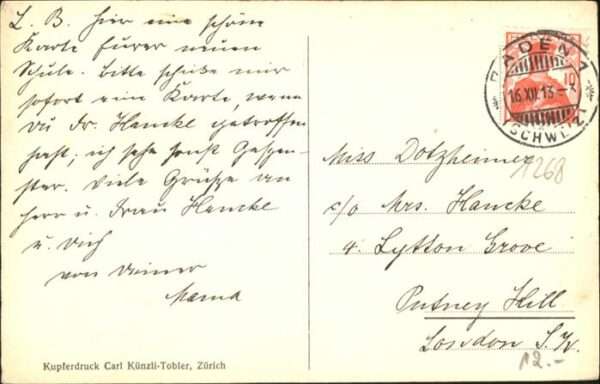 L. B. Hier eine schöne
Karte Eurer neuen
Schule. Bitte schicke mir
sofort eine Karte, wenn
du Dr. Hancke getroffen
hast; ich sehe sonst Gespen-
ster. Viele Grüße an
Herr u. Frau Hancke
u. Dich
von Deiner
Mama
Kupferdruck Carl Künzli-Tobler, Zürich
BADEN 1
16.XII.13-3
(SCHWEIZ)
10
Miss Dotzheimer
1268
c/o Mrs. Hancke
4. Lytton Grove
Putney Hill
London S.W.
12.-